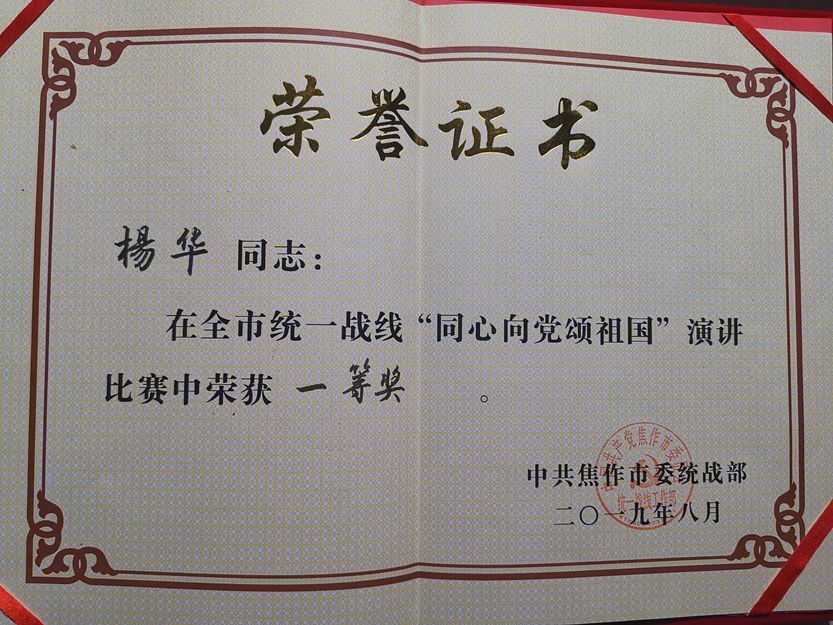 荣誉证书
楊华 同志:
在全市统一战线“同心向党颂祖国”演讲
比赛中荣获 一等奖 。
中共焦作市委统战部
二〇一九年八月
中国共产党焦作市委员会
统一战线工作部